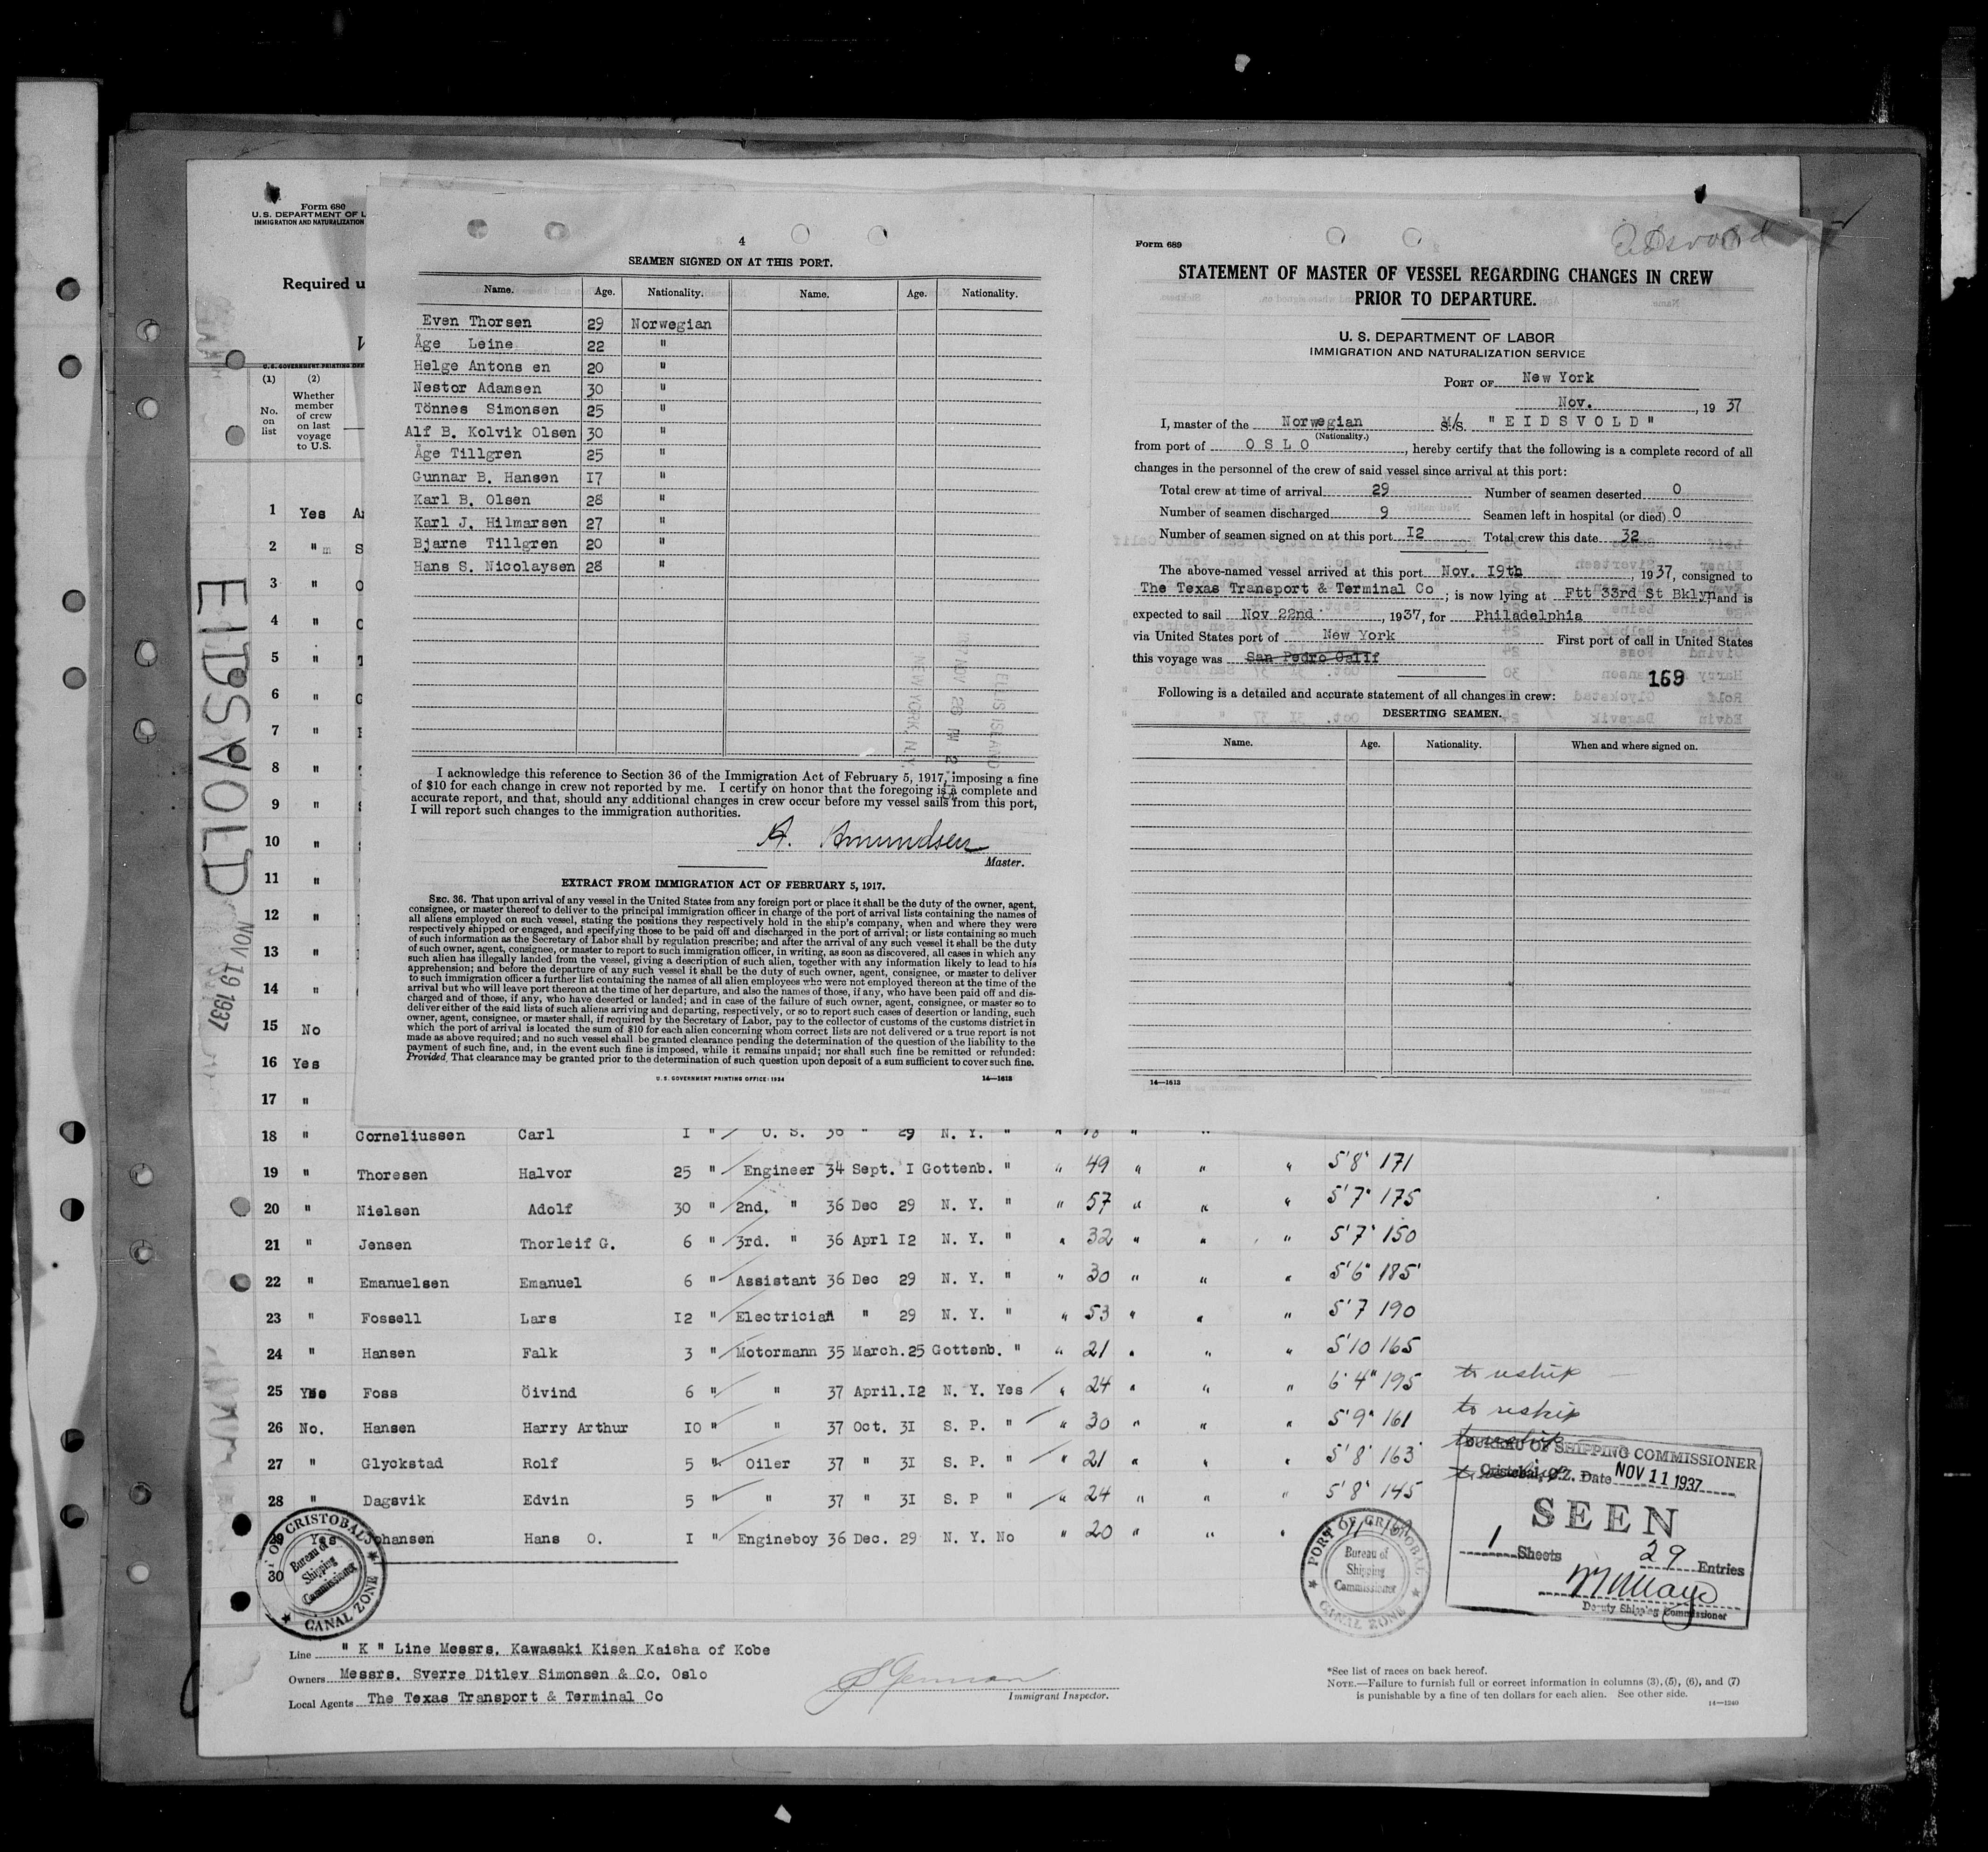 Form 680
U. S. DEPARTMENT OF L
IMMIGRATION AND NATURALIZATION
Required u
U. S. GOVERNMENT PRINTING OFF
(1) (2)
No. on list
Whether member of crew on last voyage to U.S.
EIDSVOLD
NOV 19 1937
1 Yes
2 "
3 "
4 "
5 "
6 "
7 "
8 "
9 "
10 "
11 "
12 "
13 "
14 "
15 No
16 Yes
17 "
4
SEAMEN SIGNED ON AT THIS PORT.
Name. Age. Nationality. Name. Age. Nationality.
Even Thorsen 29 Norwegian
Åge Leine 22 "
Helge Antons en 20 "
Nestor Adamsen 30 "
Tönnes Simonsen 25 "
Alf B. Kolvik Olsen 30 "
Åge Tillgren 25 "
Gunnar B. Hansen I7 "
Karl B. Olsen 28 "
Karl J. Hilmarsen 27 "
Bjarne Tillgren 20 "
Hans S. Nicolaysen 28 "
NEW YORK, N.Y.
ELLIS ISLAND
I acknowledge this reference to Section 36 of the Immigration Act of February 5, 1917, imposing a fine
of $10 for each change in crew not reported by me. I certify on honor that the foregoing is a complete and
accurate report, and that, should any additional changes in crew occur before my vessel sails from this port,
I will report such changes to the immigration authorities.
A. Amundsen
Master.
EXTRACT FROM IMMIGRATION ACT OF FEBRUARY 5, 1917.
SEC. 36. That upon arrival of any vessel in the United States from any foreign port or place it shall be the duty of the owner, agent,
consignee, or master thereof to deliver to the principal immigration officer in charge of the port of arrival lists containing the names of
all aliens employed on such vessel, stating the positions they respectively hold in the ship's company, when and where they were
respectively shipped or engaged, and specifying those to be paid off and discharged in the port of arrival; or lists containing so much
of such information as the Secretary of Labor shall by regulation prescribe; and after the arrival of any such vessel it shall be the duty
of such owner, agent, consignee, or master to report to such immigration officer, in writing, as soon as discovered, all cases in which any
such alien has illegally landed from the vessel, giving a description of such alien, together with any information likely to lead to his
apprehension; and before the departure of any such vessel it shall be the duty of such owner, agent, consignee, or master to deliver
to such immigration officer a further list containing the names of all alien employees who were not employed thereon at the time of the
arrival but who will leave port thereon at the time of her departure, and also the names of those, if any, who have been paid off and dis-
charged and of those, if any, who have deserted or landed; and in case of the failure of such owner, agent, consignee, or master so to
deliver either of the said lists of such aliens arriving and departing, respectively, or so to report such cases of desertion or landing, such
owner, agent, consignee, or master shall, if required by the Secretary of Labor, pay to the collector of customs of the customs district in
which the port of arrival is located the sum of $10 for each alien concerning whom correct lists are not delivered or a true report is not
made as above required; and no such vessel shall be granted clearance pending the determination of the question of the liability to the
payment of such fine, and, in the event such fine is imposed, while it remains unpaid; nor shall such fine be remitted or refunded:
Provided, That clearance may be granted prior to the determination of such question upon deposit of a sum sufficient to cover such fine.
U. S. GOVERNMENT PRINTING OFFICE: 1934 14—1613
Form 689
STATEMENT OF MASTER OF VESSEL REGARDING CHANGES IN CREW
PRIOR TO DEPARTURE.
U. S. DEPARTMENT OF LABOR
IMMIGRATION AND NATURALIZATION SERVICE
PORT OF New York
Nov. , 19 37
I, master of the Norwegian M/S. "EIDSVOLD"
(Nationality.)
from port of OSLO, hereby certify that the following is a complete record of all
changes in the personnel of the crew of said vessel since arrival at this port:
Total crew at time of arrival 29 Number of seamen deserted 0
Number of seamen discharged 9 Seamen left in hospital (or died) 0
Number of seamen signed on at this port I2 Total crew this date 32
The above-named vessel arrived at this port Nov. I9th, 1937, consigned to
The Texas Transport & Terminal Co; is now lying at Ftt 33rd St Bklyn, and is
expected to sail Nov 22nd, 1937, for Philadelphia
via United States port of New York First port of call in United States
this voyage was San Pedro Calif
169
Following is a detailed and accurate statement of all changes in crew:
DESERTING SEAMEN.
Name. Age. Nationality. When and where signed on.
14—1613
18 " Corneliussen Carl I " O. S. 36 " 29 N. Y. " " 18 " "
19 " Thoresen Halvor 25 " Engineer 34 Sept. I Gottenb. " " 49 " " " 5'8" 171
20 " Nielsen Adolf 30 " 2nd. " 36 Dec 29 N. Y. " " 57 " " " 5'7" 175
21 " Jensen Thorleif G. 6 " 3rd. " 36 Aprl I2 N. Y. " " 32 " " " 5'7" 150
22 " Emanuelsen Emanuel 6 " Assistant 36 Dec 29 N. Y. " " 30 " " " 5'6" 185
23 " Fossell Lars I2 " Electrician " 29 N. Y. " " 53 " " " 5'7 190
24 " Hansen Falk 3 " Motormann 35 March.25 Gottenb. " " 21 " " " 5'10 165
25 Yes Foss Öivind 6 " " 37 April.I2 N. Y. Yes " 24 " " " 6'4" 195 to reship
26 No. Hansen Harry Arthur IO " " 37 Oct. 3I S. P. " " 30 " " " 5'9" 161 to reship
27 " Glyckstad Rolf 5 " Oiler 37 " 3I S. P. " " 21 " " " 5'8" 163
28 " Dagsvik Edvin 5 " " 37 " 3I S. P " " 24 " " " 5'8" 145
29 Yes Johansen Hans O. I " Engineboy 36 Dec. 29 N. Y. No " 20 " " "
30
PORT OF CRISTOBAL
Bureau of
Shipping
Commissioner
CANAL ZONE
PORT OF CRISTOBAL
Bureau of
Shipping
Commissioner
CANAL ZONE
BUREAU OF SHIPPING COMMISSIONER
Cristobal, C.Z. Date NOV 11 1937
SEEN
1 Sheets 29 Entries
Deputy Shipping Commissioner
Line " K " Line Messrs. Kawasaki Kisen Kaisha of Kobe
Owners Messrs. Sverre Ditlev Simonsen & Co. Oslo
Local Agents The Texas Transport & Terminal Co
Immigrant Inspector.
*See list of races on back hereof.
NOTE.—Failure to furnish full or correct information in columns (3), (5), (6), and (7)
is punishable by a fine of ten dollars for each alien. See other side.
14—1240